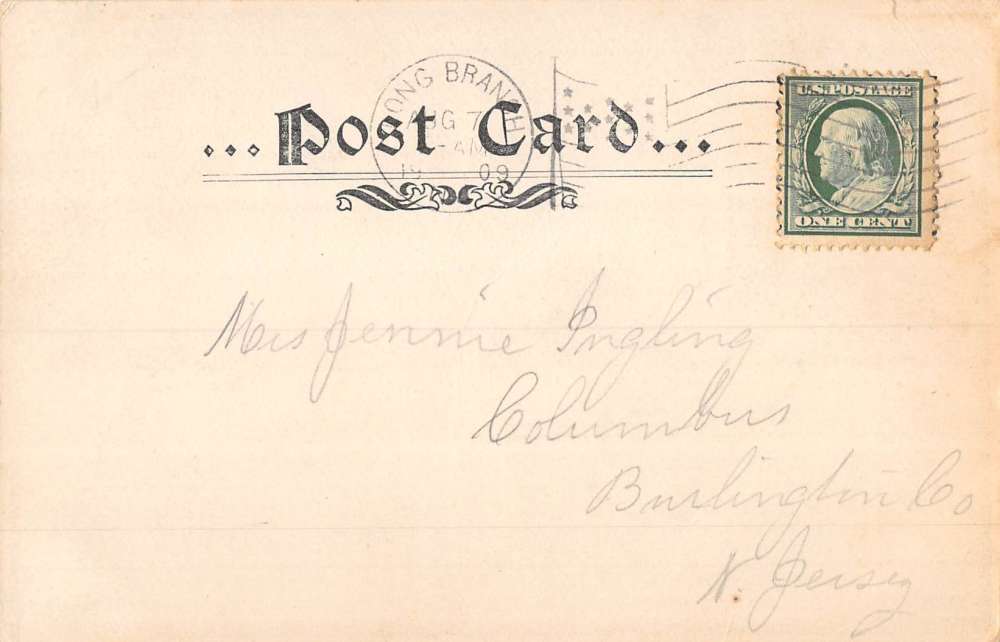 LONG BRANCH
AUG 7
-AM
19 09
...Post Card...
U.S. POSTAGE
ONE CENT
Mrs Jennie Ingling
Columbus
Burlington Co
N. Jersey